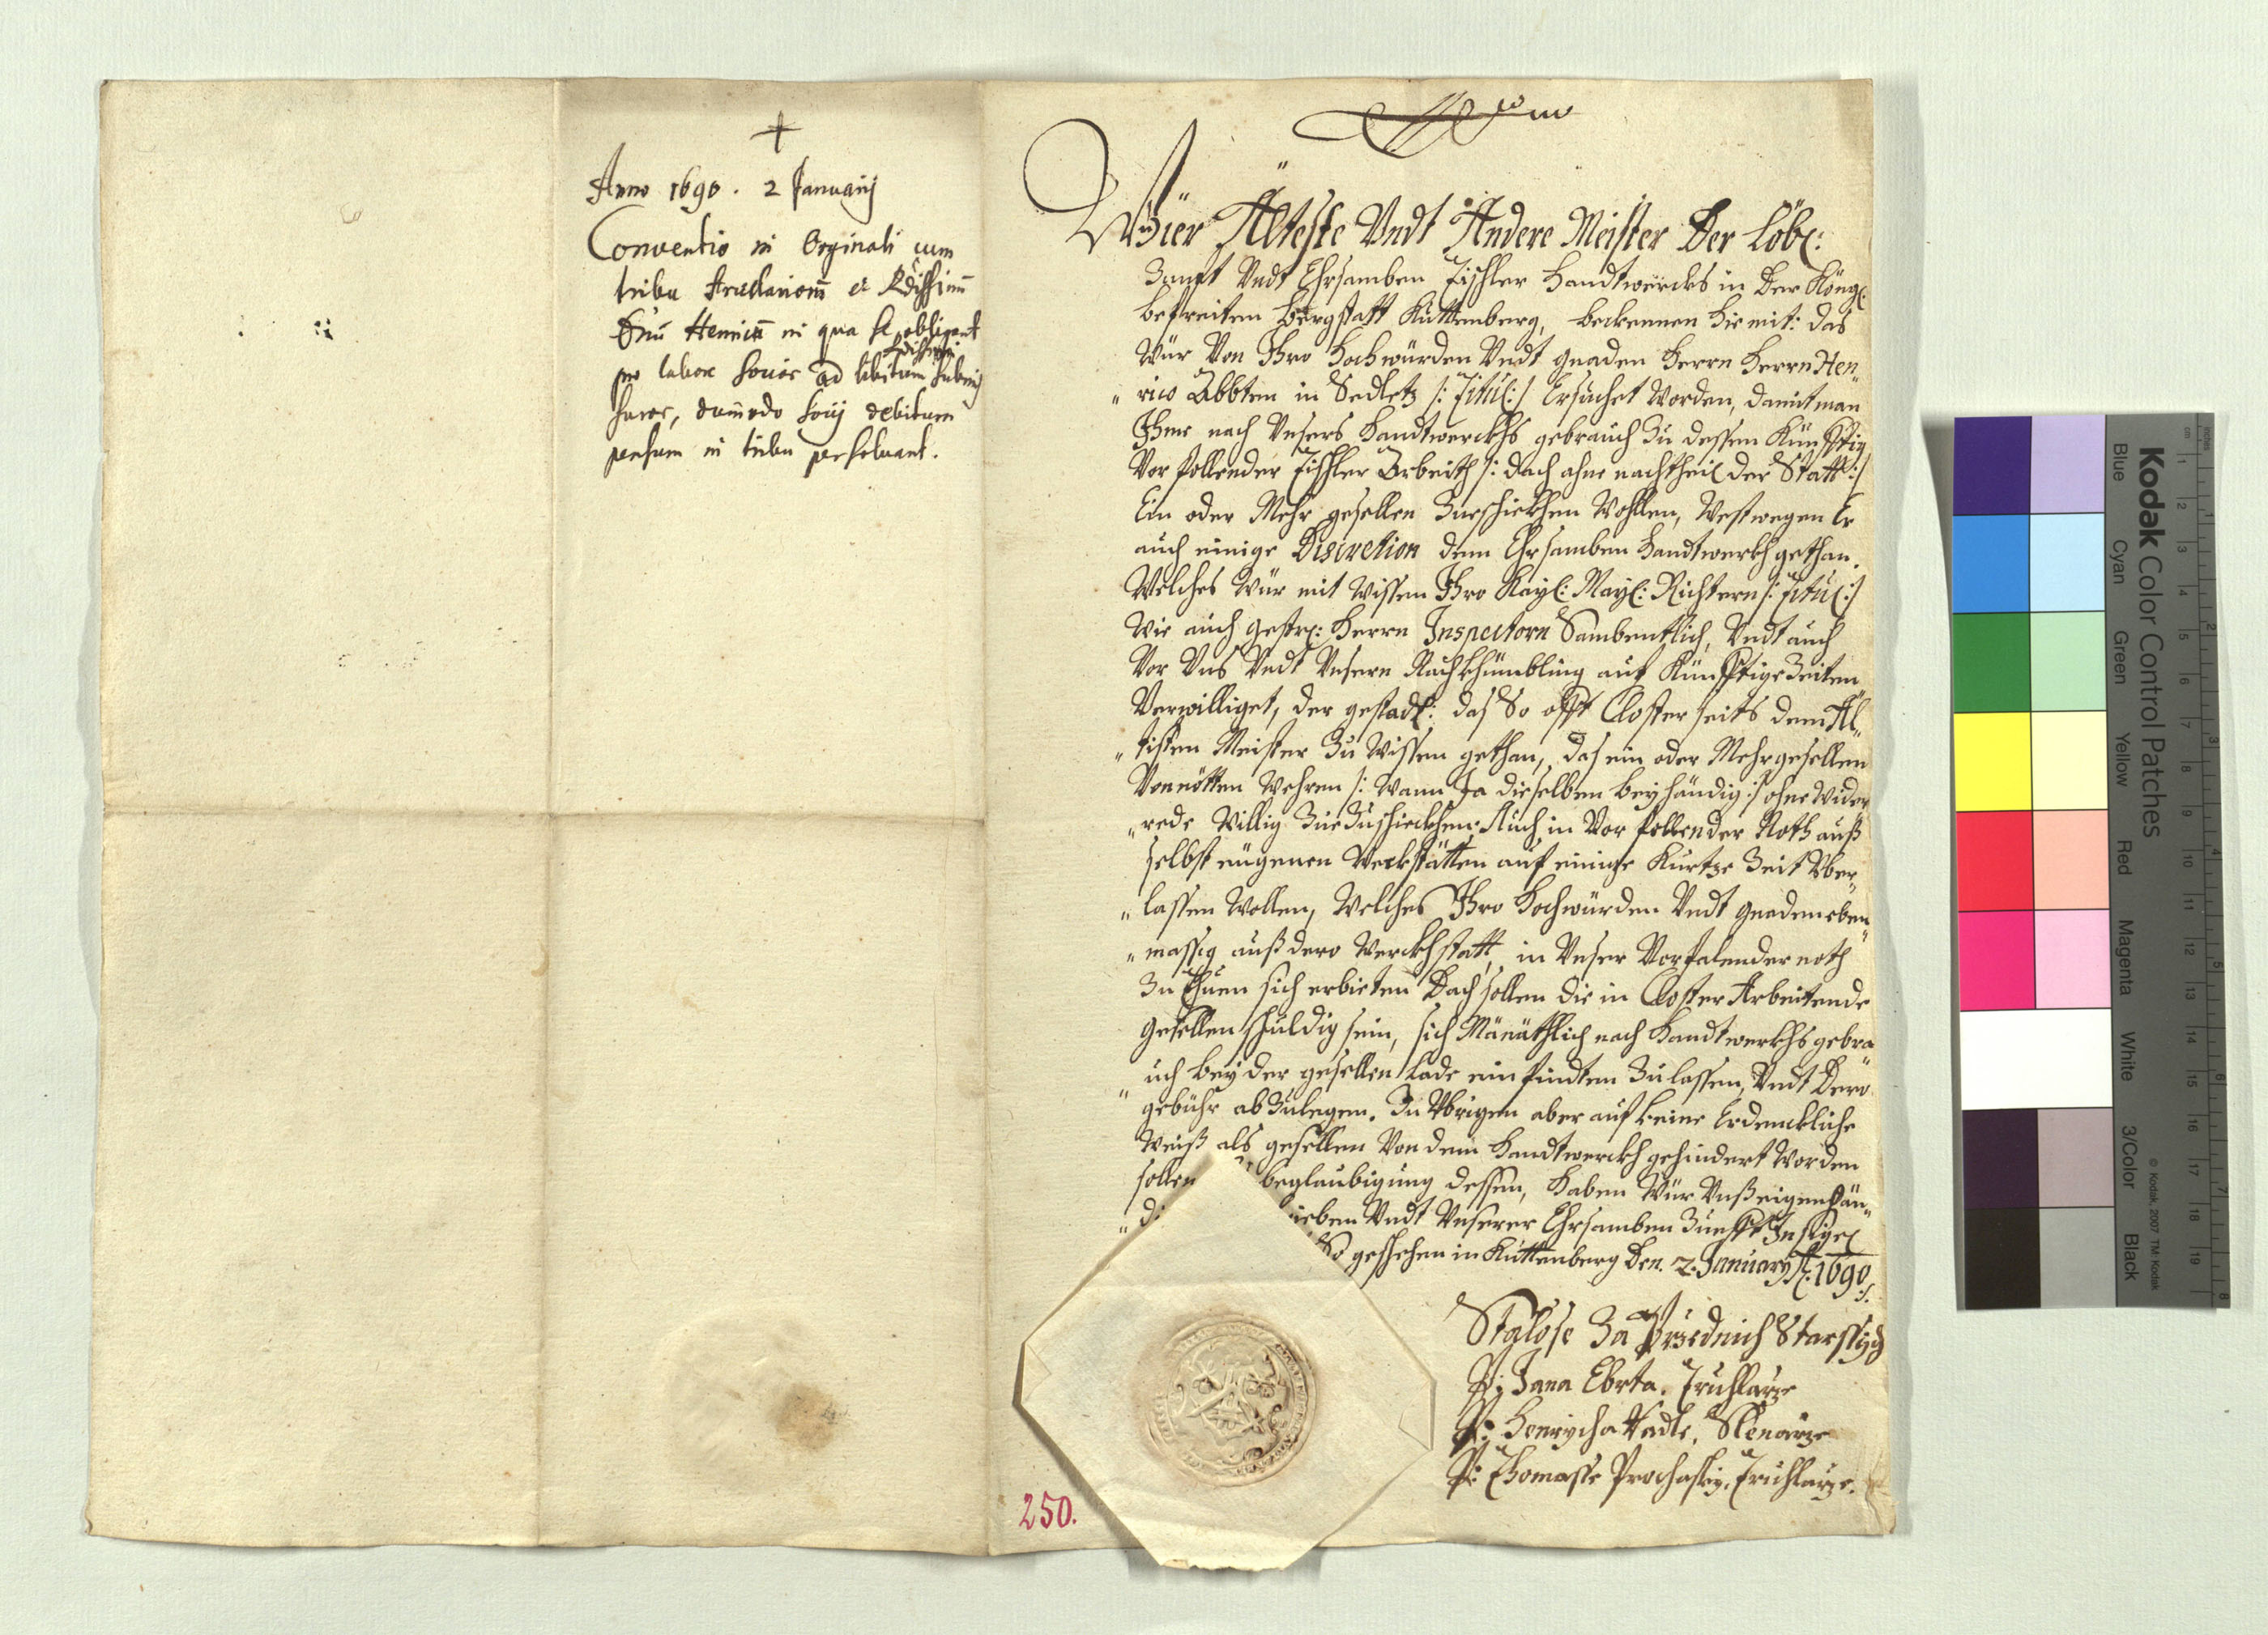 Anno 1690. 2 Januarij
Conventio in Orginali cum
tribu Arculariorũ et Rdissimũ
Dnũ Henricũ in qua se obligant
Rdissimi
pro labore socios ad libitum submis
suros, dummodo socij debitum
pensum in tribu persolvant.
Wüer Älteste Vndt Andere Meister Der Löbl:
Zunft Vndt Ehrsamben Tischler Handtwercks in Der Köngl:
befreiten Bergstatt Kuttenberg, bekennen hiemit: das
Wür Von Ihro Hochwürden Vndt Gnaden Herrn Herrn Hen„
„rico Abbten in Sedletz /: Titul :/ Ersuchet Worden, damit man
Ihme nach Vnsers Handtwerckhs gebrauch Zu dessen Künfftig
Vorfallender Tischler Arbeith /: doch ohne nachtheil der Statt :/
Ein oder Mehr gesellen Zueschickhen Wohlen, Westwegen Er
auch einige Discretion dem Ehrsamben Handtwerkh gethan.
Welches Wür mit Wissen Ihro Kayl: Mayl: Richtern /: Titul :/
Wie auch gestr: Herrn Inspectorn Sambentlich, Vndt auch
Vor Vns Vndt Vnsern Nachkhümbling auf Künfftige Zeiten
Verwilliget, der gestadt: das So offt Closter seits dem Äl„
„tisten Meister Zu Wissen gethan, das ein oder Mehr gesellen
Vonnötten Wehren /: Wann Ja dieselben beyhändig :/ ohne Wider
„rede Willig Zue Zuschickhen, Auch in Vorfallender Noth auß
selbst eügenen Werkstätten auf einige Kurtze Zeit Vber„
„lassen Wollen, Welches Ihro Hochwürden Vndt Gnaden eben„
„massig auß dero Werckhstatt, in Vnser Vorfalender noth
Zu Thuen sich erbieten Doch sollen die in Closter Arbeitende
Gesellen schuldig sein, sich Mänäthlich nach Handtwerkhs gebra
„uch bey der gesellen Lade einfindten Zulassen, Vndt Dero
gebühr abZulegen. In Vbrigen aber auf keine Erdenckliche
Weiß als gesellen Von dem Handtwerckh gehindert Worden
sollen beglaubigung dessen, haben Wür Vnß eigenhän„
„di ieben Vndt Vnserer Ehrsamben Zunfft Insigel
So geschehen in Kuttenberg Den. 2. January A: 1690 :/.
Stalo se Za Przednich Starssych
P: Jana Ebrta, Truhlarze
P: Henrycha Hadle, Sklenarze
P: Thomasse Prochasky, Truhlarze.
250.
Kodak Color Control Patches
© Kodak, 2007 TM: Kodak
Blue Cyan Green Yellow Red Magenta White 3/Color Black
inches 1 2 3 4 5 6 7 8
cm 1 2 4 5 6 7 8 9 10 11 12 13 14 15 16 17 18 19